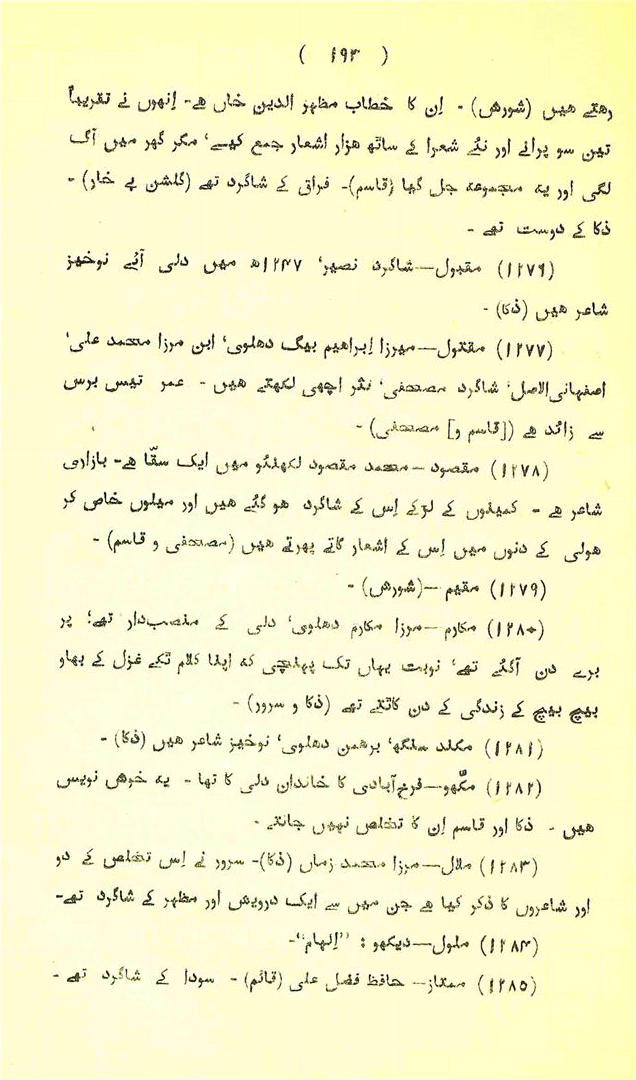 ( ۱۹۴ )
رهتے هیں (شورش) - اِن کا خطاب مظہر الدین خاں هے- اِنھوں نے تقریباً
تین سو پرانے اور نئے شعرا کے ساتھ هزار اشعار جمع کیے‘ مگر گھر میں آگ
لگی اور یه مجموعه جل گیا (قاسم)- فراق کے شاگرد تھے (گلشن بے خار) -
ذکا کے دوست تھے -
(۱۲۷۶) مقبول—شاگرد نصیر‘ ۱۲۴۷ھ میں دلی آئے نوخیز
شاعر هیں (ذکا) -
(۱۲۷۷) مقتول—میرزا اِبراهیم بیگ دهلوی‘ ابن مرزا محمد علی‘
اصفہانی‌الاصل‘ شاگرد مصحفی‘ نثر اچھی لکھتے هیں - عمر تیس برس
سے زائد هے ([قاسم و] مصحفی) -
(۱۲۷۸) مقصود—محمد مقصود لکھنئو میں ایک سقّا هے- بازاری
شاعر هے - کمینوں کے لڑکے اِس کے شاگرد هو گئے هیں اور میلوں خاص کر
هولی کے دنوں میں اِس کے اشعار گاتے پھرتے هیں (مصحفی و قاسم) -
(۱۲۷۹) مقیم—(شورش) -
(۱۲۸۰) مکارم—مرزا مکارم دهلوی‘ دلی کے منصب‌دار تھے؛ پر
برے دن آگئے تھے‘ نوبت یہاں تک پہنچی که اپنا کلام ٹکے غزل کے بھاو
بیچ بیچ کے زندگی کے دن کاٹتے تھے (ذکا و سرور) -
(۱۲۸۱) مکند سنگھ‘ برهمن دهلوی‘ نوخیز شاعر هیں (ذکا) -
(۱۲۸۲) مگّھو—فرخ‌آبادی کا خاندان دلی کا تھا - یه خوش نویس
هیں - ذکا اور قاسم اِن کا تخلص نہیں جانتے -
(۱۲۸۳) ملال—مرزا محمد زماں (ذکا)- سرور نے اِس تخلص کے دو
اور شاعروں کا ذکر کیا هے جن میں سے ایک درویش اور مظہر کے شاگرد تھے-
(۱۲۸۴) ملول—دیکھو : ’’اِلہام‘‘-
(۱۲۸۵) ممتاز— حافظ فضل علی (قائم) - سودا کے شاگرد تھے -